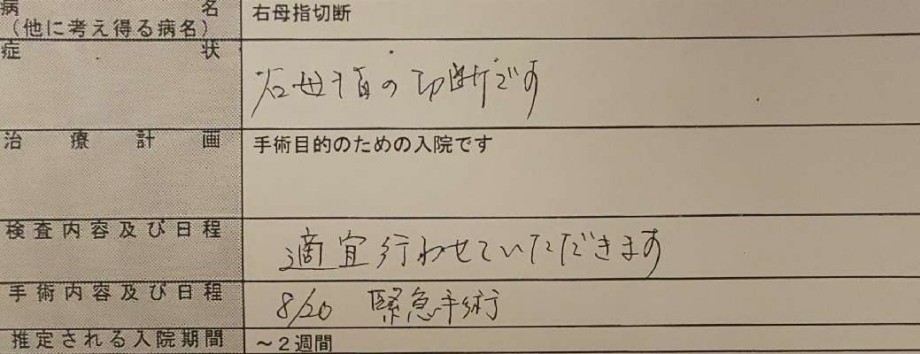 病名 右母指切断
(他に考え得る病名)
症状 右母指の切断です
治療計画 手術目的のための入院です
検査内容及び日程 適宜行わせていただきます
手術内容及び日程 8/20 緊急手術
推定される入院期間 ～2週間